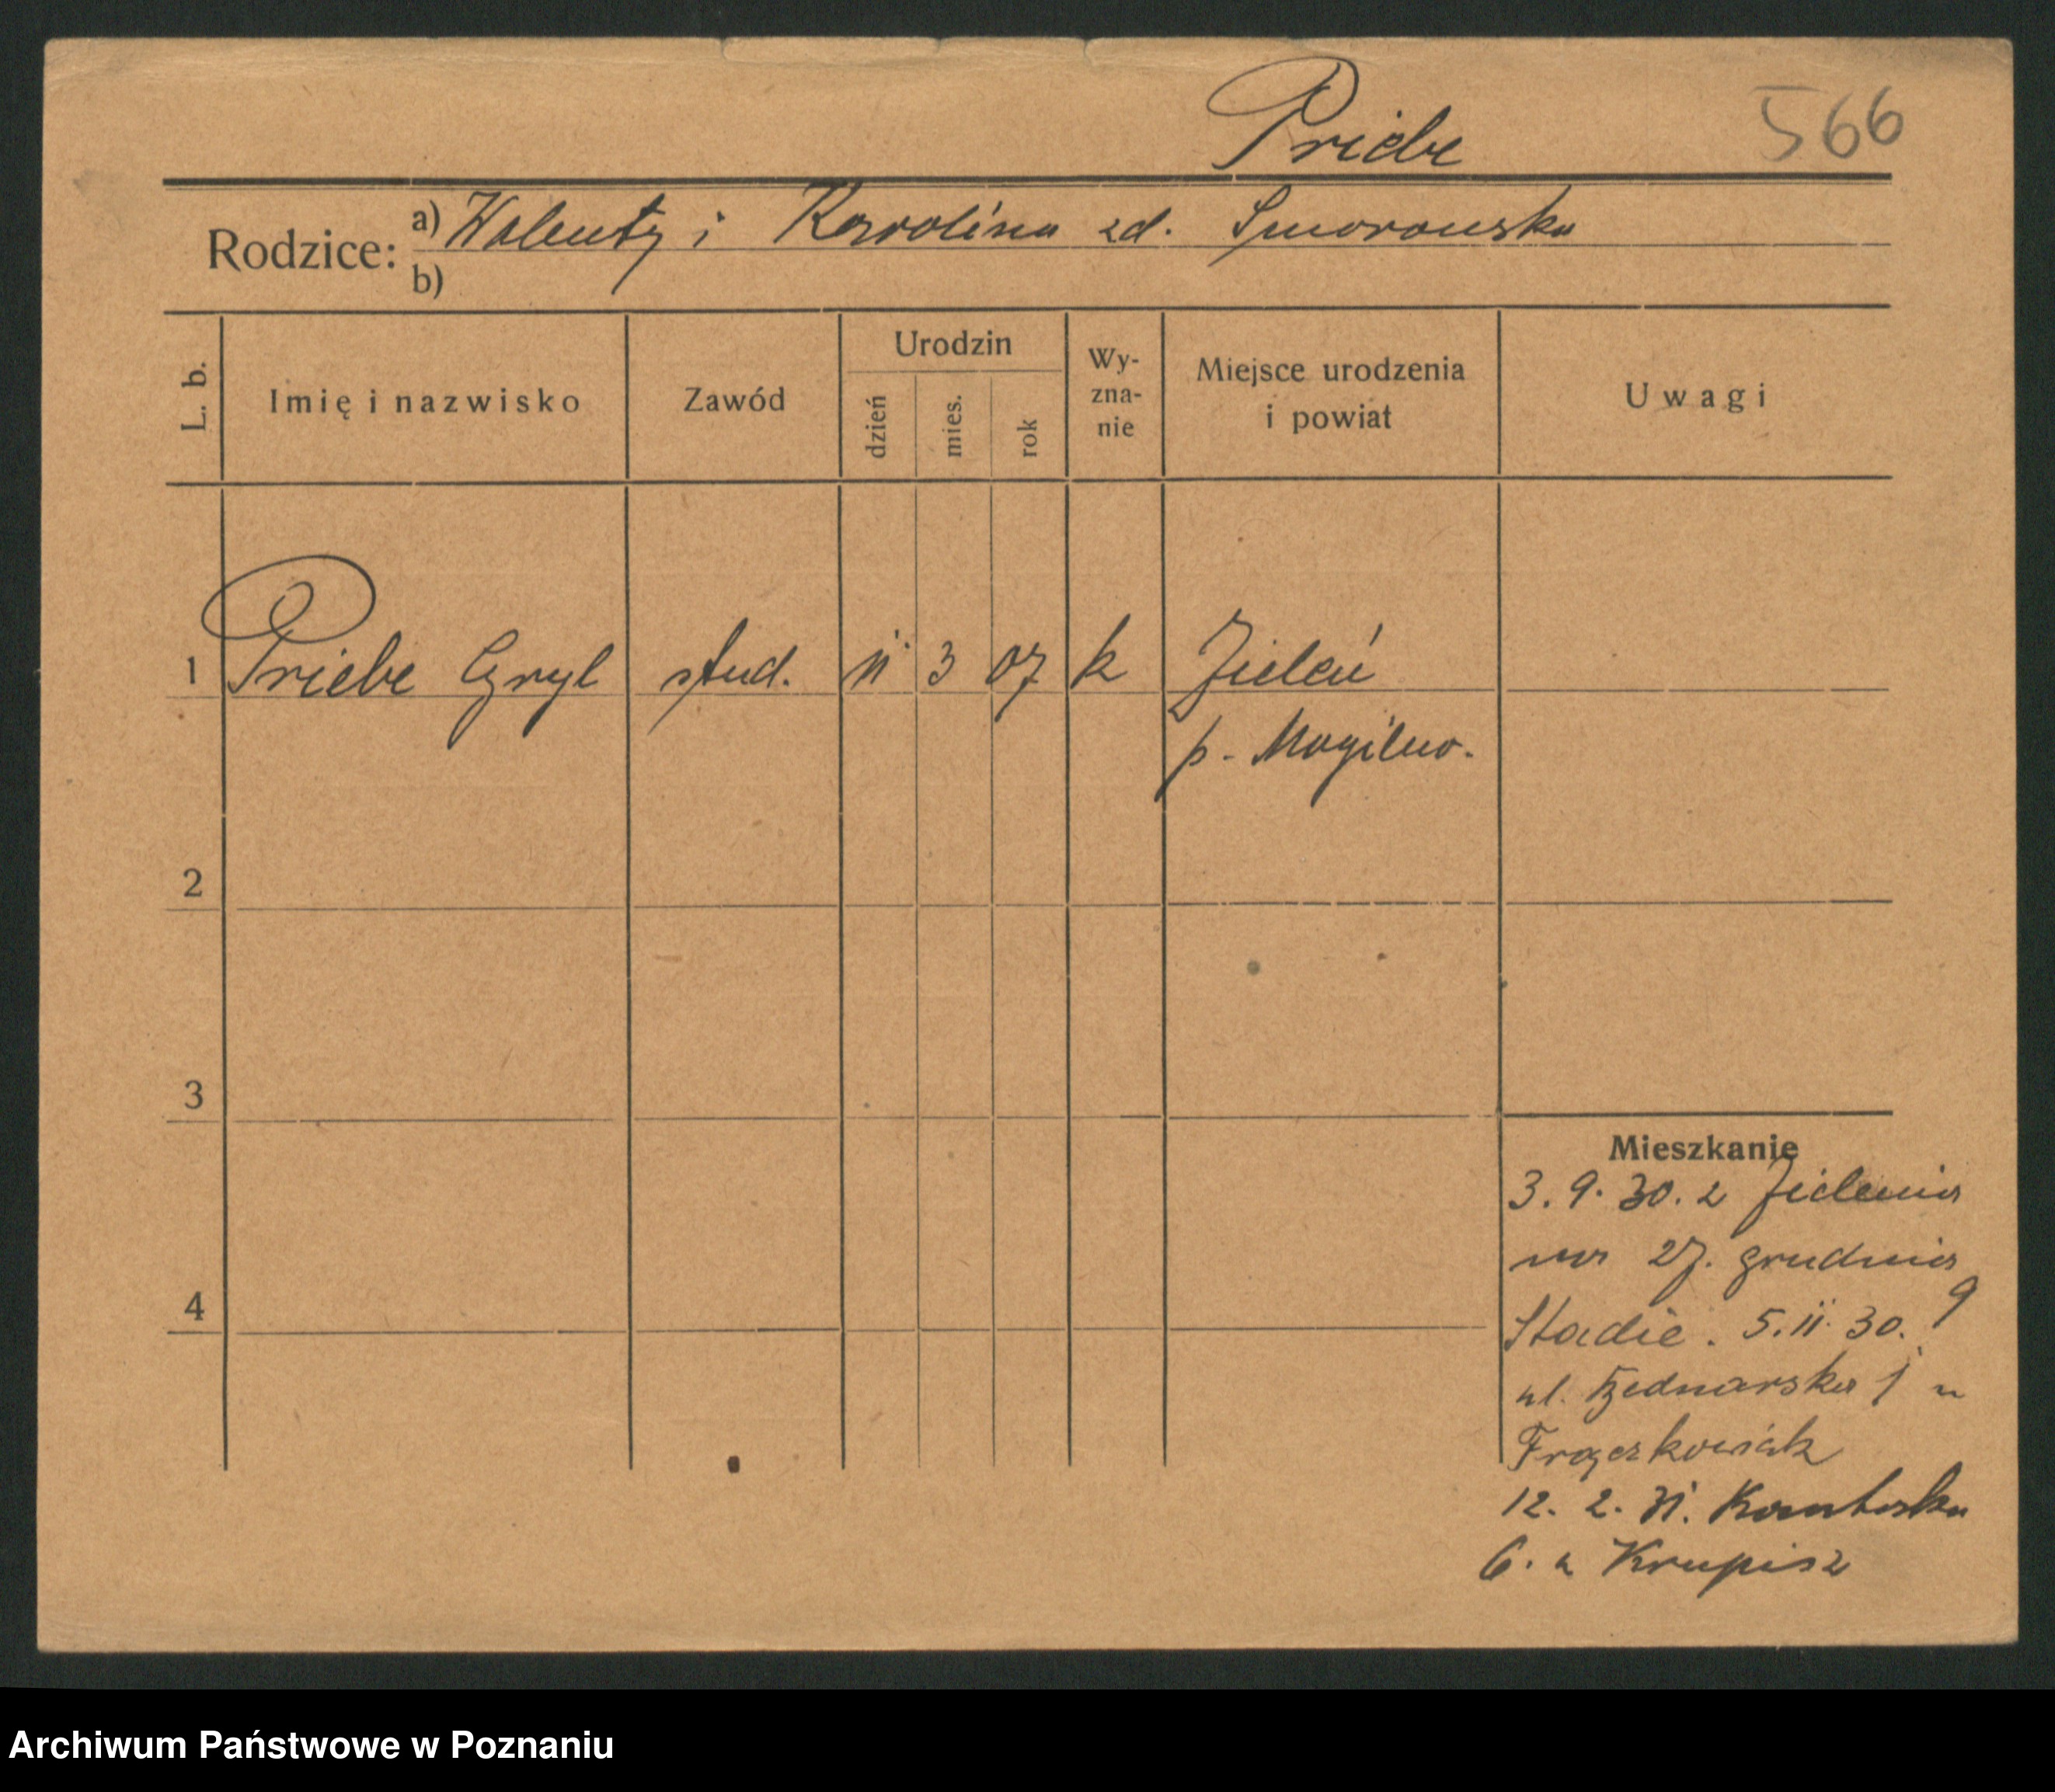 Priebe 566
Rodzice: a) Walenty i Karolina zd. Smorowska
b)
L. b. Imię i nazwisko Zawód Urodzin dzień mies. rok Wy-zna-nie Miejsce urodzenia i powiat Uwagi
1 Priebe Cyryl stud. 11 3 07 k Zieleń
p. Mogilno.
2
3
4
Mieszkanie
3. 9. 30. z Zielenia
27. grudnia 9
Stadie. 5. 11. 30.
ul. Bednarska 1 u
Frączkowiak
12. 2. 31. Kantaska
6. u Krupisz
Archiwum Państwowe w Poznaniu